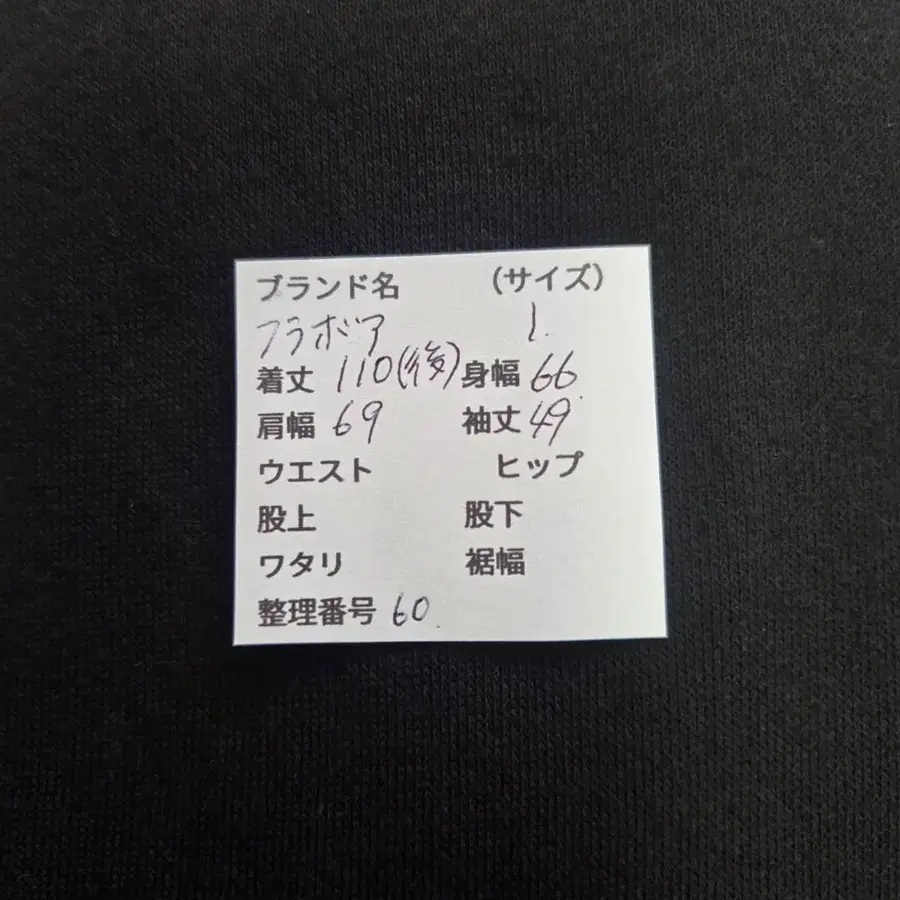 ブランド名 (サイズ)
フラボア 1.
着丈 110(後) 身幅 66
肩幅 69 袖丈 49
ウエスト ヒップ
股上 股下
ワタリ 裾幅
整理番号 60.